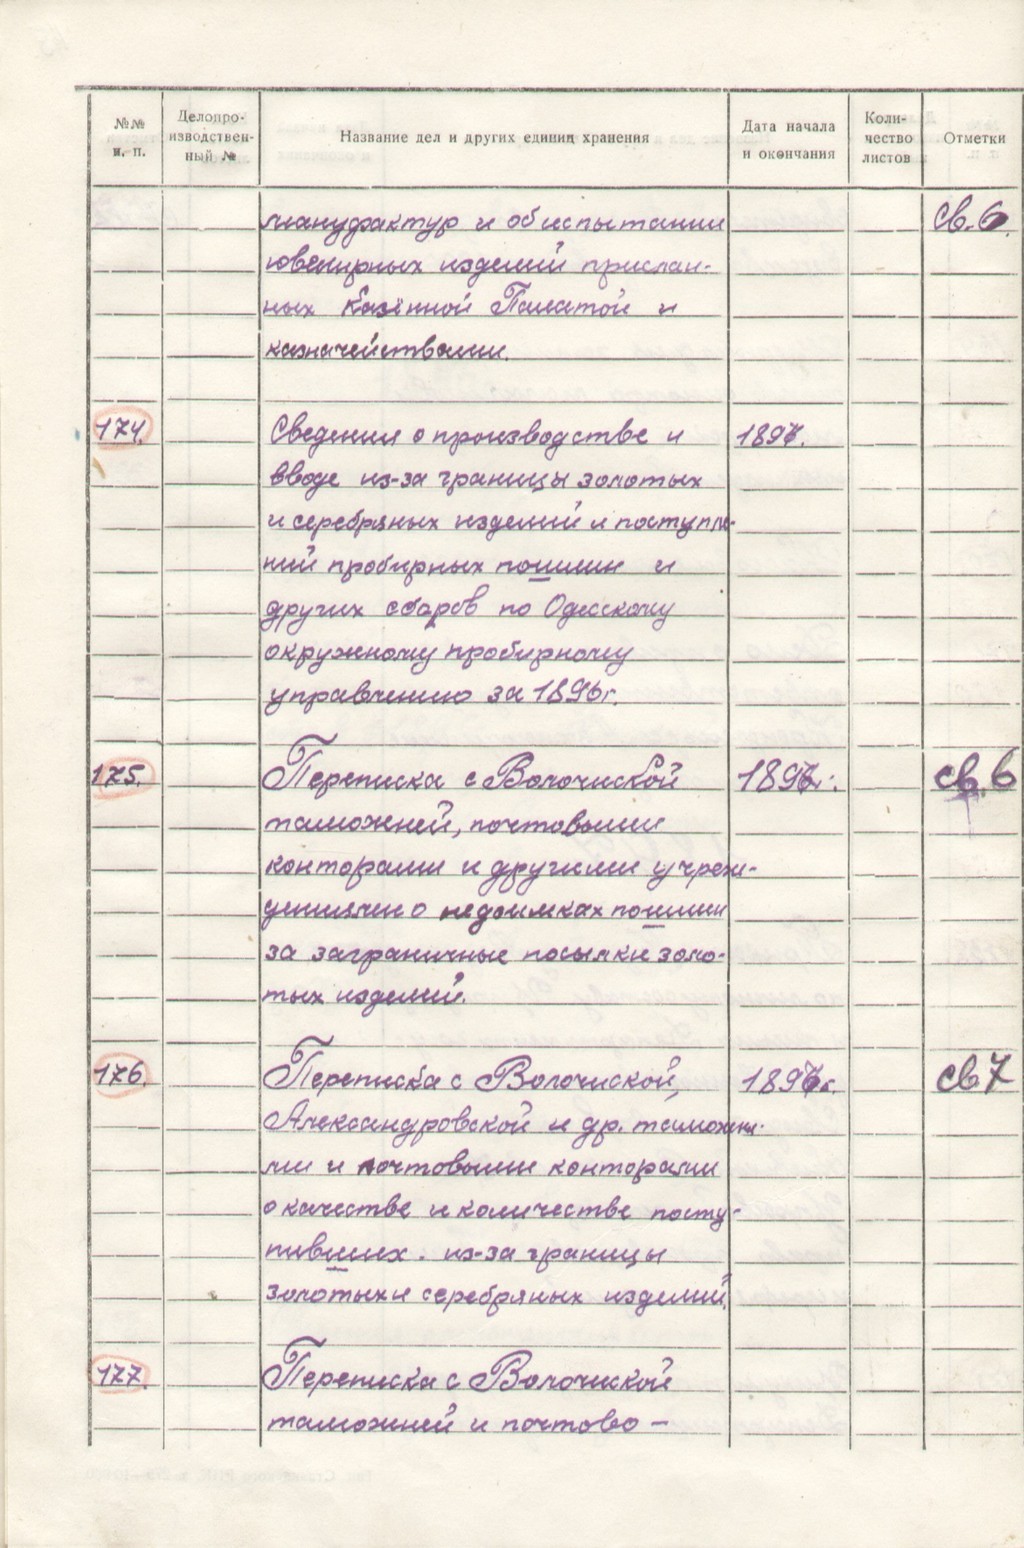 №№ п. п.
Делопро-
изводствен-
ный №
Название дел и других единиц хранения
Дата начала
и окончания
Коли-
чество
листов
Отметки
мануфактур и об испытании св. 6.
ювелирных изделий прислан-
ных Казённой Палатой и
казначействами.
174. Сведения о производстве и 1897.
вводе из-за границы золотых
и серебряных изделий и поступле-
ний пробирных пошлин и
других сборов по Одесскому
окружному пробирному
управлению за 1896г.
175. Переписка с Волочиской 1897г. св. 6
таможней, почтовыми
конторами и другими учреж-
дениями о недоимках пошлин
за заграничные посылки золо-
тых изделий.
176. Переписка с Волочиской, 1897г. св 7
Александровской и др. таможня-
ми и почтовыми конторами
о качестве и количестве посту-
пивших. из-за границы
золотых и серебряных изделий.
177. Переписка с Волочиской
таможней и почтово-